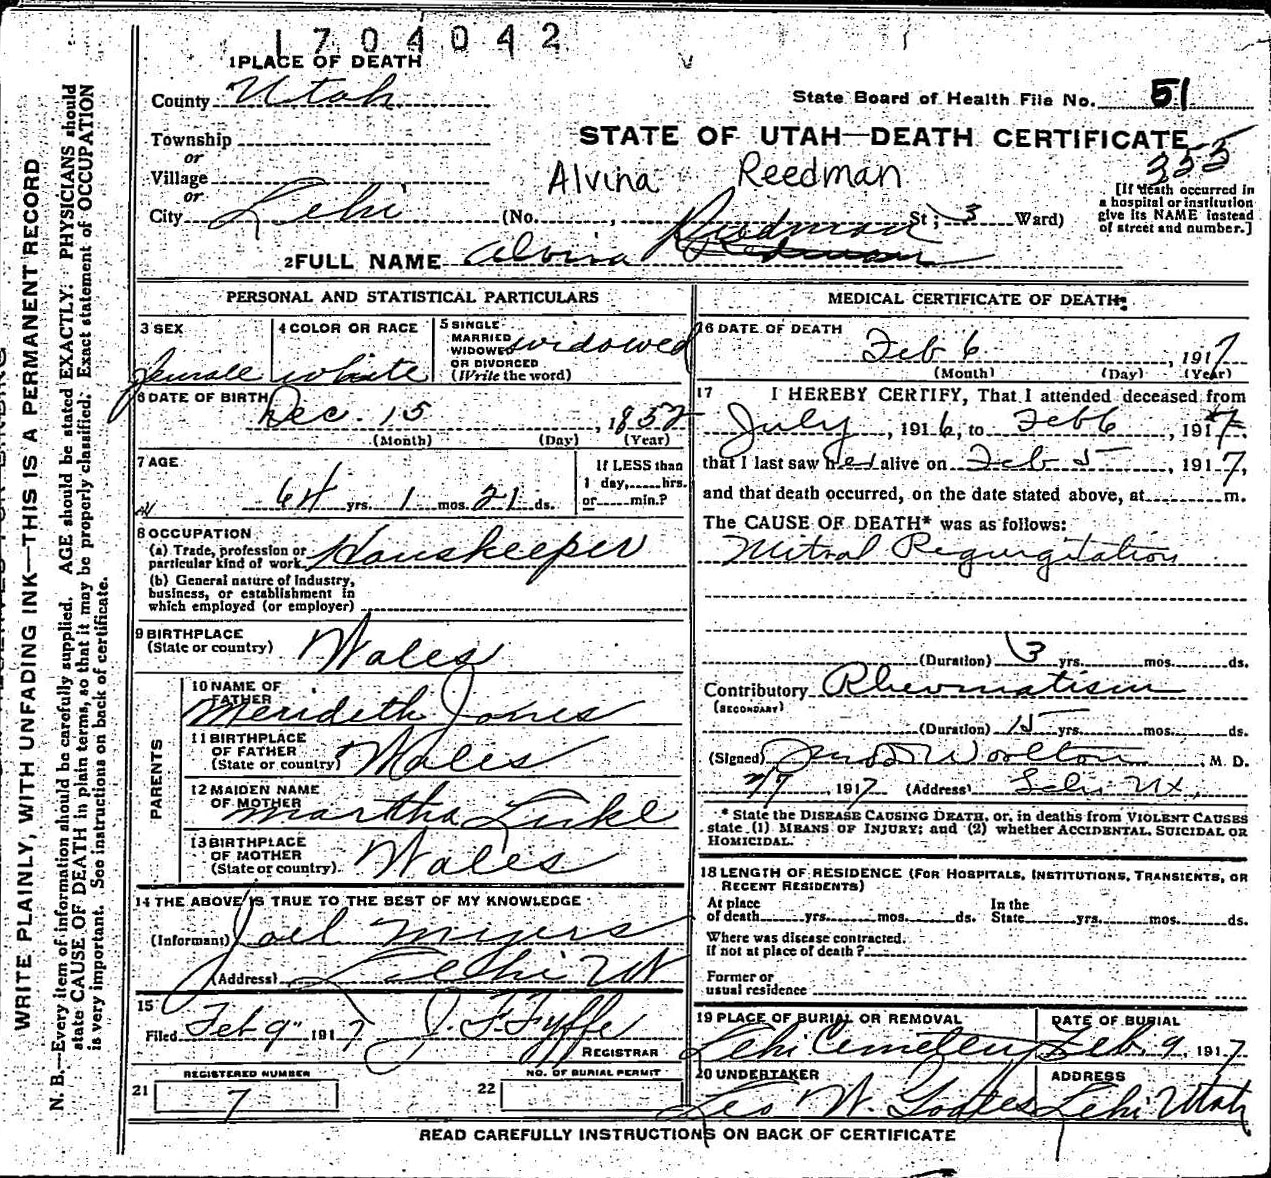 1704042
1 PLACE OF DEATH
County Utah
State Board of Health File No. 51
Township
or
STATE OF UTAH—DEATH CERTIFICATE
355
Village
or
Alvina Reedman
[If death occurred in
a hospital or institution
give its NAME instead
of street and number.]
City Lehi (No. St; 3 Ward)
2 FULL NAME Alvina Reedman
PERSONAL AND STATISTICAL PARTICULARS
3 SEX
female
4 COLOR OR RACE
white
5 SINGLE
MARRIED
WIDOWED
OR DIVORCED
(Write the word)
widowed
6 DATE OF BIRTH
Dec. 15, 1852
(Month) (Day) (Year)
7 AGE
64 yrs. 1 mos. 21 ds.
If LESS than
1 day, hrs.
or min.?
8 OCCUPATION
(a) Trade, profession or
particular kind of work Houskeeper
(b) General nature of industry,
business, or establishment in
which employed (or employer)
9 BIRTHPLACE
(State or country) Wales
PARENTS
10 NAME OF
FATHER
Merideth Jones
11 BIRTHPLACE
OF FATHER
(State or country) Wales
12 MAIDEN NAME
OF MOTHER
Martha
13 BIRTHPLACE
OF MOTHER
(State or country) Wales
14 THE ABOVE IS TRUE TO THE BEST OF MY KNOWLEDGE
(Informant) Joel Myers
(Address) Lehi Ut
15
Filed Feb 9" 1917 J. F. Fyffe
REGISTRAR
21 REGISTERED NUMBER
7
22 NO. OF BURIAL PERMIT
MEDICAL CERTIFICATE OF DEATH
16 DATE OF DEATH
Feb 6, 1917
(Month) (Day) (Year)
17 I HEREBY CERTIFY, That I attended deceased from
July, 1916, to Feb 6, 1917,
that I last saw her alive on Feb 5, 1917,
and that death occurred, on the date stated above, at m.
The CAUSE OF DEATH* was as follows:
Mitral Regurgitation
(Duration) 3 yrs. mos. ds.
Contributory Rheumatism
(SECONDARY)
(Duration) 15 yrs. mos. ds.
(Signed) Woolton, M. D.
2/7, 1917 (Address) Lehi Ut.
* State the DISEASE CAUSING DEATH, or, in deaths from VIOLENT CAUSES
state (1) MEANS OF INJURY; and (2) whether ACCIDENTAL, SUICIDAL OR
HOMICIDAL.
18 LENGTH OF RESIDENCE (FOR HOSPITALS, INSTITUTIONS, TRANSIENTS, OR
RECENT RESIDENTS)
At place
of death yrs. mos. ds.
In the
State yrs. mos. ds.
Where was disease contracted,
if not at place of death?
Former or
usual residence
19 PLACE OF BURIAL OR REMOVAL
Lehi Cemetery
DATE OF BURIAL
Feb. 9, 1917
20 UNDERTAKER
Geo W. Goates
ADDRESS
Lehi Utah
READ CAREFULLY INSTRUCTIONS ON BACK OF CERTIFICATE
WRITE PLAINLY, WITH UNFADING INK—THIS IS A PERMANENT RECORD
N. B.—Every item of information should be carefully supplied. AGE should be stated EXACTLY. PHYSICIANS should
state CAUSE OF DEATH in plain terms, so that it may be properly classified. Exact statement of OCCUPATION
is very important. See instructions on back of certificate.